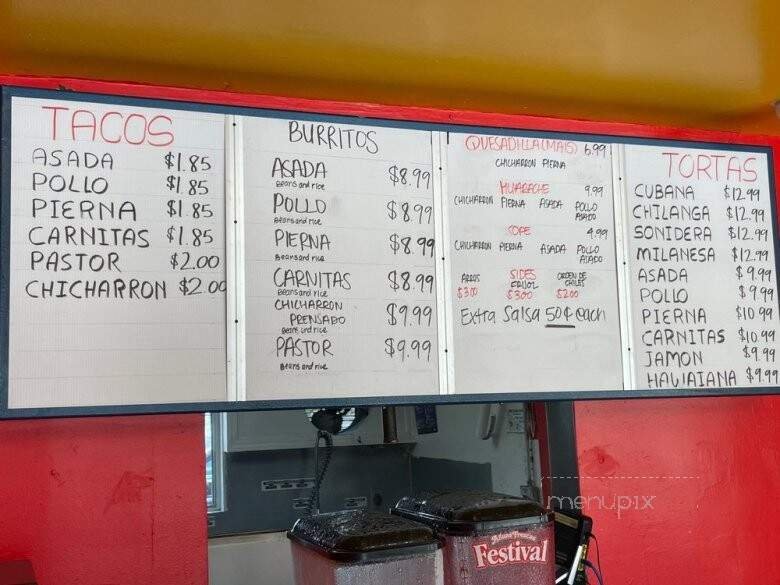 TACOS
ASADA $1.85
POLLO $1.85
PIERNA $1.85
CARNITAS $1.85
PASTOR $2.00
CHICHARRON $2.00
BURRITOS
ASADA $8.99
Beans and rice
POLLO $8.99
Beans and rice
PIERNA $8.99
Beans and rice
CARNITAS $8.99
Beans and rice
CHICHARRON
PRENSADO $9.99
Beans and rice
PASTOR $9.99
Beans and rice
QUESADILLA(MAIS) 6.99
CHICHARRON PIERNA
HUARACHE 9.99
CHICHARRON PIERNA ASADA POLLO
ASADO
SOPE 4.99
CHICHARRON PIERNA ASADA POLLO
ASADO
ARROS SIDES ORDEN DE
FRIJOL CHILES
$3.00 $3.00 $2.00
Extra Salsa 50¢ each
TORTAS
CUBANA $12.99
CHILANGA $12.99
SONIDERA $12.99
MILANESA $12.99
ASADA $9.99
POLLO $9.99
PIERNA $10.99
CARNITAS $10.99
JAMON $9.99
HAWAIANA $9.99
menupix
Aguas Frescas
Festival